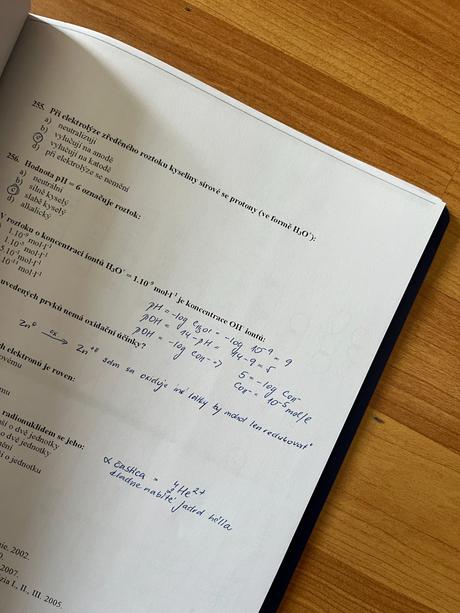 255. Při elektrolýze zředěného roztoku kyseliny sírové se protony (ve formě H₃O⁺):
a) neutralizují
b) vylučují na anodě
c) vylučují na katodě
d) při elektrolýze se nemění
256. Hodnota pH = 6 označuje roztok:
a) neutrální
b) silně kyselý
c) slabě kyselý
d) alkalický
V roztoku o koncentraci iontů H₃O⁺ = 1.10⁻⁹ mol·l⁻¹ je koncentrace OH⁻ iontů:
mol·l⁻¹
mol·l⁻¹
mol·l⁻¹
mol·l⁻¹
pH = -log = -log 10⁻⁹ = 9
pOH = 14 - pH = 14 - 9 = 5
pOH = -log c OH⁻ →
5 = -log c OH⁻
c OH⁻ = 10⁻⁵ mol/l
uvedených prvků nemá oxidační účinky?
Zn⁰ ox → Zn⁺ᴵᴵ sám sa oxiduje iné látky by mohol len redukovať
elektronů je roven:
radionuklidem se jeho:
o dvě jednotky
o dvě jednotky
o jednotku
α častica = ⁴₂He²⁺
kladne nabité jadrá hélia
2002.
2007.
I., II., III. 2005.